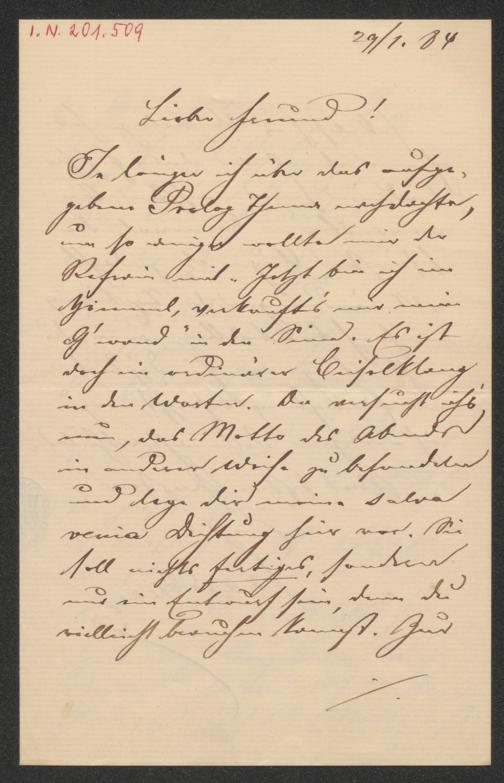 I. N. 201.509
29/1. 84
Lieber Freund!
Je länger ich über das aufge-
gebene Prolog Thema nachdachte,
um so weniger wollte mir der
Refrain mit „Jetzt bin ich im
Himmel, verkaufts nur mein
G'wand" in den Sinn. Es ist
doch ein ordinärer Beiselklang
in den Worten. Da versucht ich's
nun, das Motto des Abends
in anderer Weise zu behandeln
und lege dir meine salva
venia Dichtung hier vor. Sie
soll nichts fertiges, sondern
nur ein Entwurf sein, den du
vielleicht brauchen kannst. Zur
./.